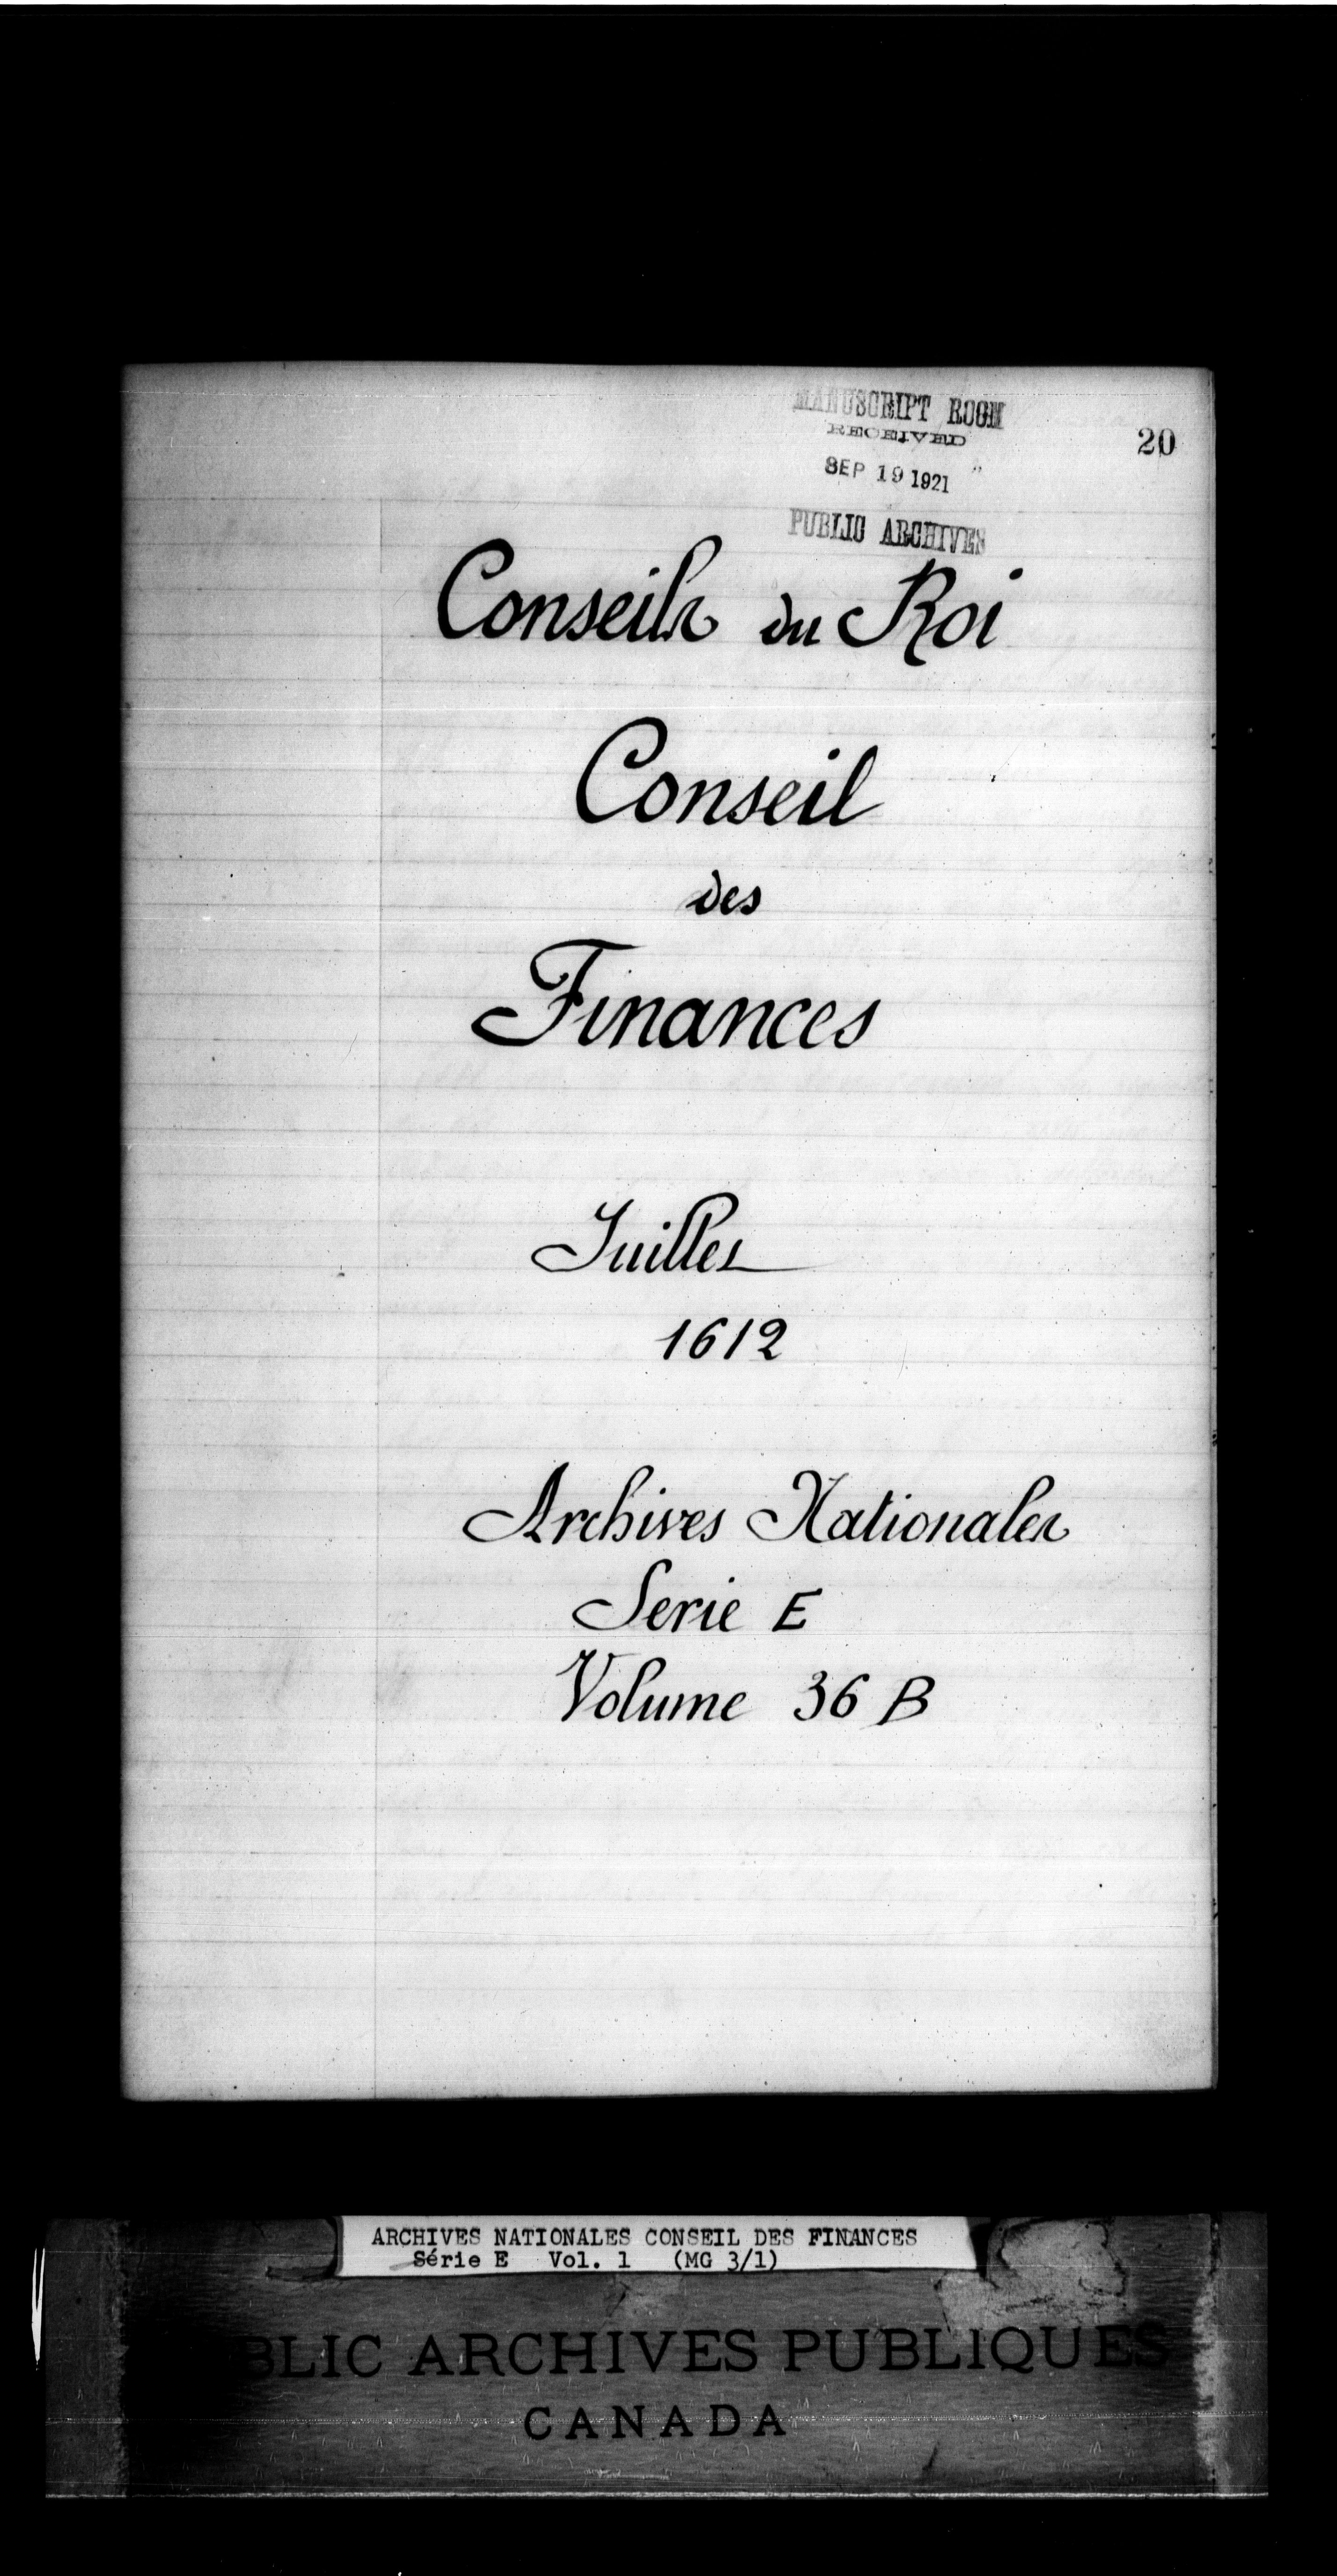 MANUSCRIPT ROOM
RECEIVED
20
SEP 19 1921
PUBLIC ARCHIVES
Conseils du Roi
Conseil
des
Finances
Juillet
1612
Archives Nationales
Serie E
Volume 36 B
ARCHIVES NATIONALES CONSEIL DES FINANCES
Série E Vol. 1 (MG 3/1)
BLIC ARCHIVES PUBLIQUES
CANADA